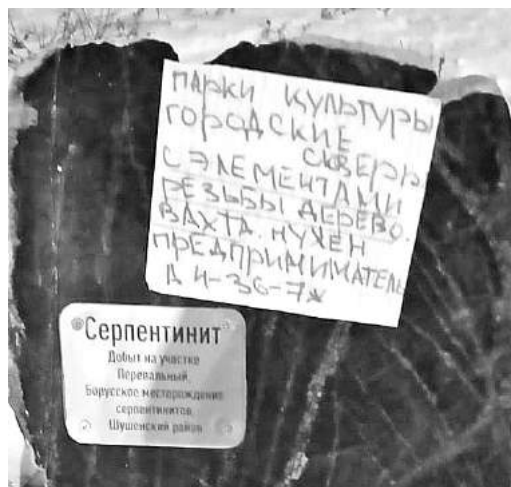 ПАРКИ КУЛЬТУРЫ
ГОРОДСКИЕ
СКВЕРЫ
С ЭЛЕМЕНТАМИ
РЕЗЬБЫ ДЕРЕВО.
ВАХТА. НУЖЕН
ПРЕДПРИМИМАТЕЛЬ
Д 4-36-7ж
Серпентинит
Добыт на участке
Перевальный.
Борусское месторождение
серпентинитов.
Шушенский район